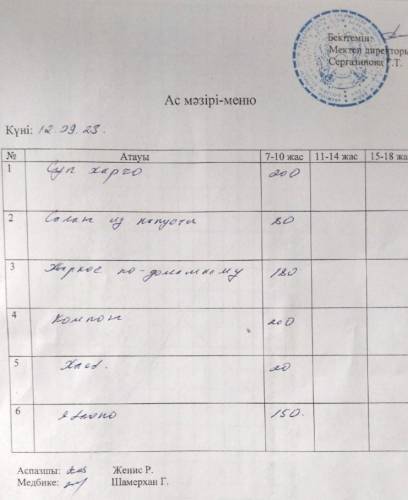 Бекітемін:
Мектеп директоры
Сергазинова Г.Т.
Ас мәзірі-меню
Күні: 12.09.23.
№ Атауы 7-10 жас 11-14 жас 15-18 жас
1 Суп харчо 200
2 Салат из капусты 80
3 Жаркое по-домашнему 180
4 Компот 200
5 Хлеб. 20
6 Яблоко 150.
Аспазшы: Женис Р.
Медбике: Шамерхан Г.